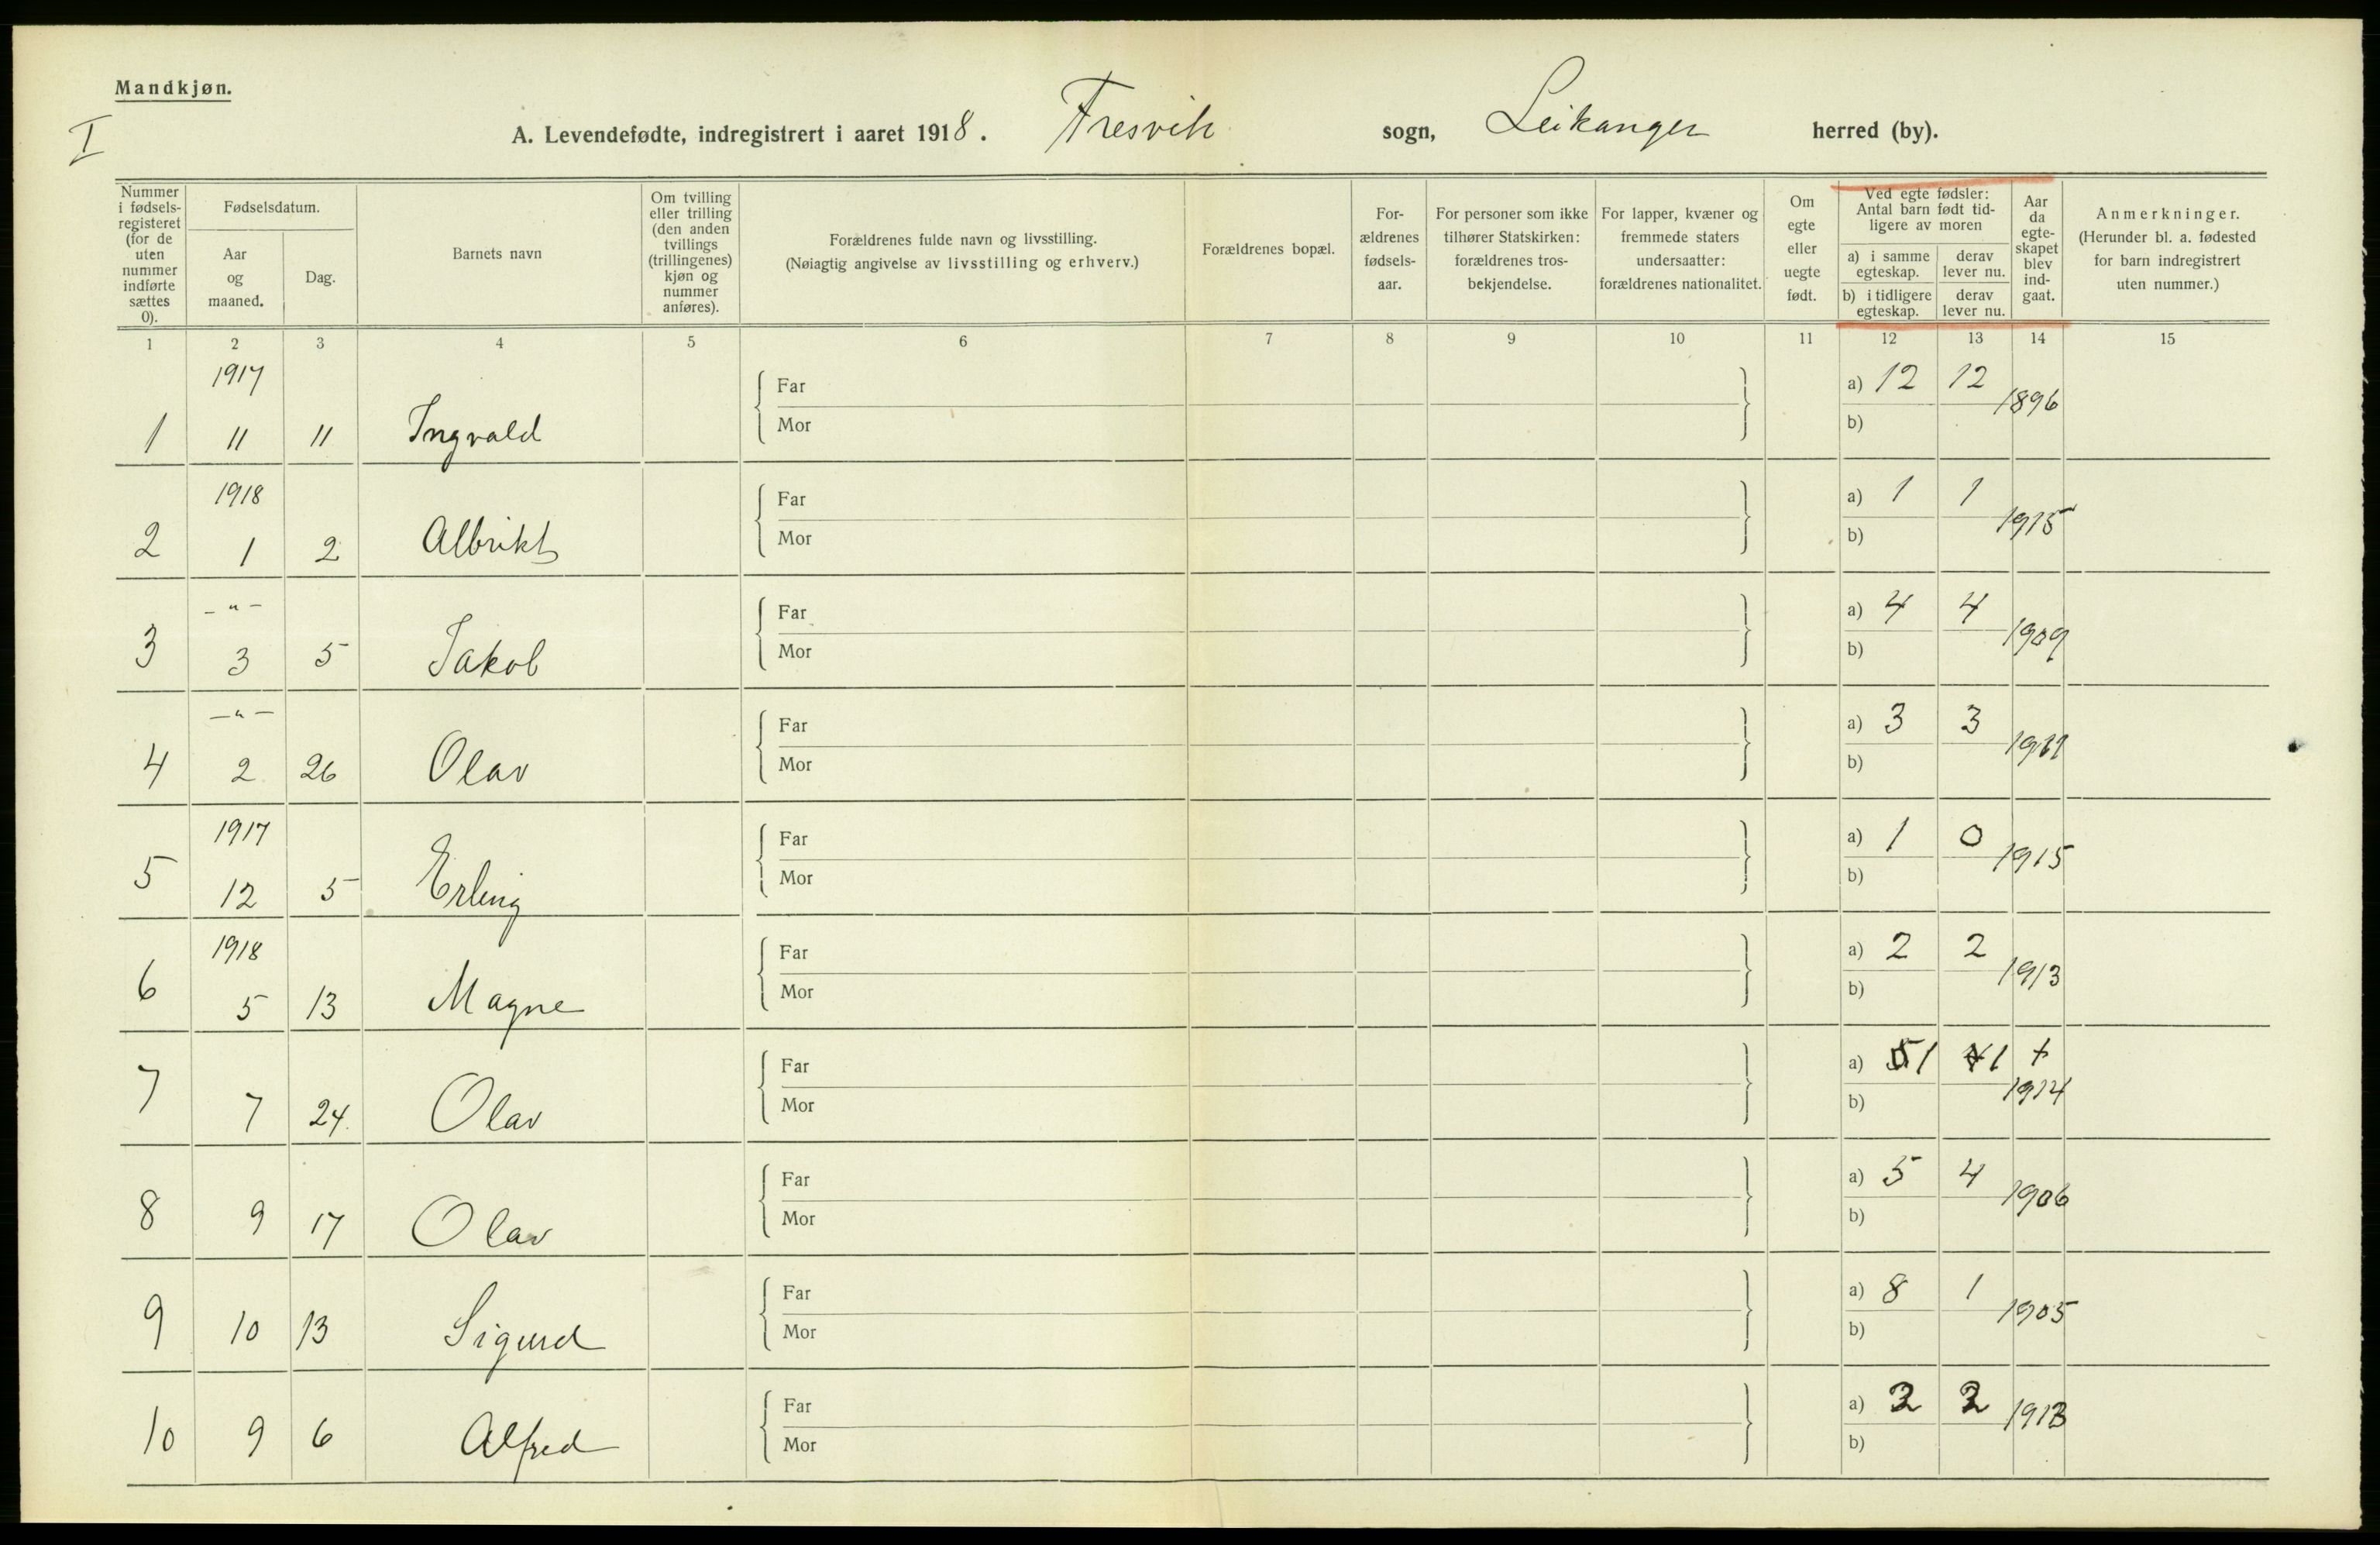 Mandkjøn.
I
A. Levendefødte, indregistrert i aaret 1918. Fresvik sogn, Leikanger herred (by).
Nummer i fødsels-registeret (for de uten nummer indførte sættes 0).
Fødselsdatum.
Aar og maaned.
Dag.
Barnets navn
Om tvilling eller trilling (den anden tvillings (trillingenes) kjøn og nummer anføres).
Forældrenes fulde navn og livsstilling.
(Nøiagtig angivelse av livsstilling og erhverv.)
Forældrenes bopæl.
For-ældrenes fødsels-aar.
For personer som ikke tilhører Statskirken: forældrenes tros-bekjendelse.
For lapper, kvæner og fremmede staters undersaatter: forældrenes nationalitet.
Om egte eller uegte født.
Ved egte fødsler: Antal barn født tid-ligere av moren
a) i samme egteskap.
derav lever nu.
b) i tidligere egteskap.
derav lever nu.
Aar da egte-skapet blev ind-gaat.
Anmerkninger.
(Herunder bl. a. fødested for barn indregistrert uten nummer.)
1 2 3 4 5 6 7 8 9 10 11 12 13 14 15
1917
Far a) 12 12 1896
1 11 11 Ingvald Mor b)
1918
Far a) 1 1 1915
2 1 2 Albrikt Mor b)
- " -
Far a) 4 4 1909
3 3 5 Jakob Mor b)
- " -
Far a) 3 3
4 2 26 Olav Mor b)
1917
Far a) 1 0 1915
5 12 5 Erling Mor b)
1918
Far a) 2 2 1913
6 5 13 Magne Mor b)
Far a) 1 1 + 1914
7 7 24. Olav Mor b)
Far a) 5 4 1906
8 9 17 Olav Mor b)
Far a) 8 1 1905
9 10 13 Sigurd Mor b)
Far a)
10 9 6 Alfred Mor b)